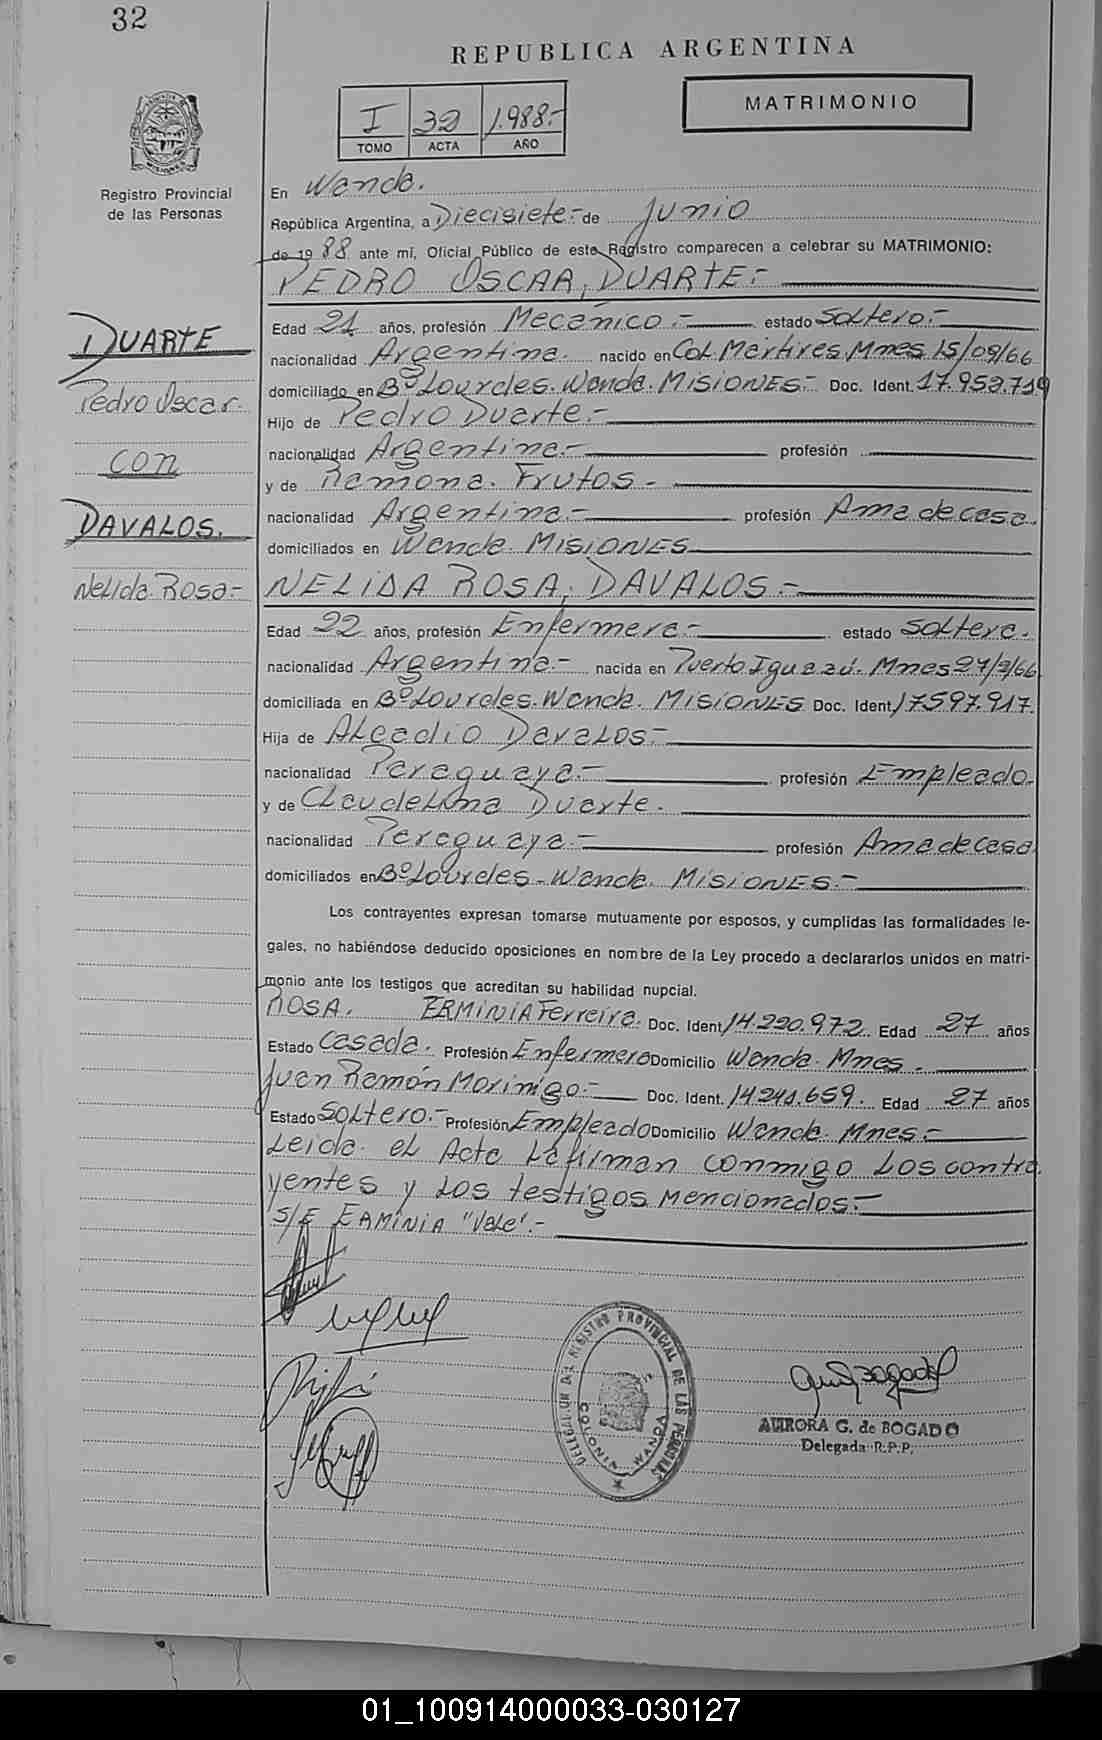 32
REPUBLICA ARGENTINA
MATRIMONIO
I 32 1.988.-
TOMO ACTA AÑO
Registro Provincial
de las Personas
En Wanda.
República Argentina, a Diecisiete.- de Junio
de 1988 ante mí, Oficial Público de este Registro comparecen a celebrar su MATRIMONIO:
PEDRO OSCAR, DUARTE.-
DUARTE
Pedro Oscar.
con
DAVALOS.
Nelida Rosa.-
Edad 21 años, profesión Mecánico.- estado Soltero.-
nacionalidad Argentina. nacido en Col. Mártires Mnes 15/09/66
domiciliado en Bº Lourdes. Wanda. MISIONES.- Doc. Ident. 17.952.719
Hijo de Pedro Duarte.-
nacionalidad Argentina.- profesión
y de Ramona. Frutos.-
nacionalidad Argentina.- profesión Ama de casa.
domiciliados en Wanda. MISIONES
NELIDA ROSA, DAVALOS.-
Edad 22 años, profesión Enfermera.- estado Soltera.
nacionalidad Argentina.- nacida en Puerto Iguazú. Mnes 27/3/66
domiciliada en Bº Lourdes. Wanda. MISIONES Doc. Ident. 17597.917.
Hija de Alcadio Davalos.-
nacionalidad Paraguaya.- profesión Empleado.
y de Claudelina Duarte.
nacionalidad Paraguaya.- profesión Ama de casa
domiciliados en Bº Lourdes - Wanda. MISIONES.-
Los contrayentes expresan tomarse mutuamente por esposos, y cumplidas las formalidades le-
gales, no habiéndose deducido oposiciones en nombre de la Ley procedo a declararlos unidos en matri-
monio ante los testigos que acreditan su habilidad nupcial.
ROSA. ERMINIA Ferreira. Doc. Ident. 14.220.972. Edad 27 años
Estado Casada. Profesión Enfermera Domicilio Wanda. Mnes.
Juan Ramón Morinigo.- Doc. Ident. 14.241.659. Edad 27 años
Estado Soltero.- Profesión Empleado Domicilio Wanda. Mnes.-
Leida. el Acta La firman conmigo Los contra
yentes y Los testigos mencionados.-
S/E ERMINIA "Vale".-
DELEGACION DEL REGISTRO PROVINCIAL DE LAS PERSONAS
COLONIA WANDA
AURORA G. de BOGADO
Delegada R.P.P.
01_100914000033-030127